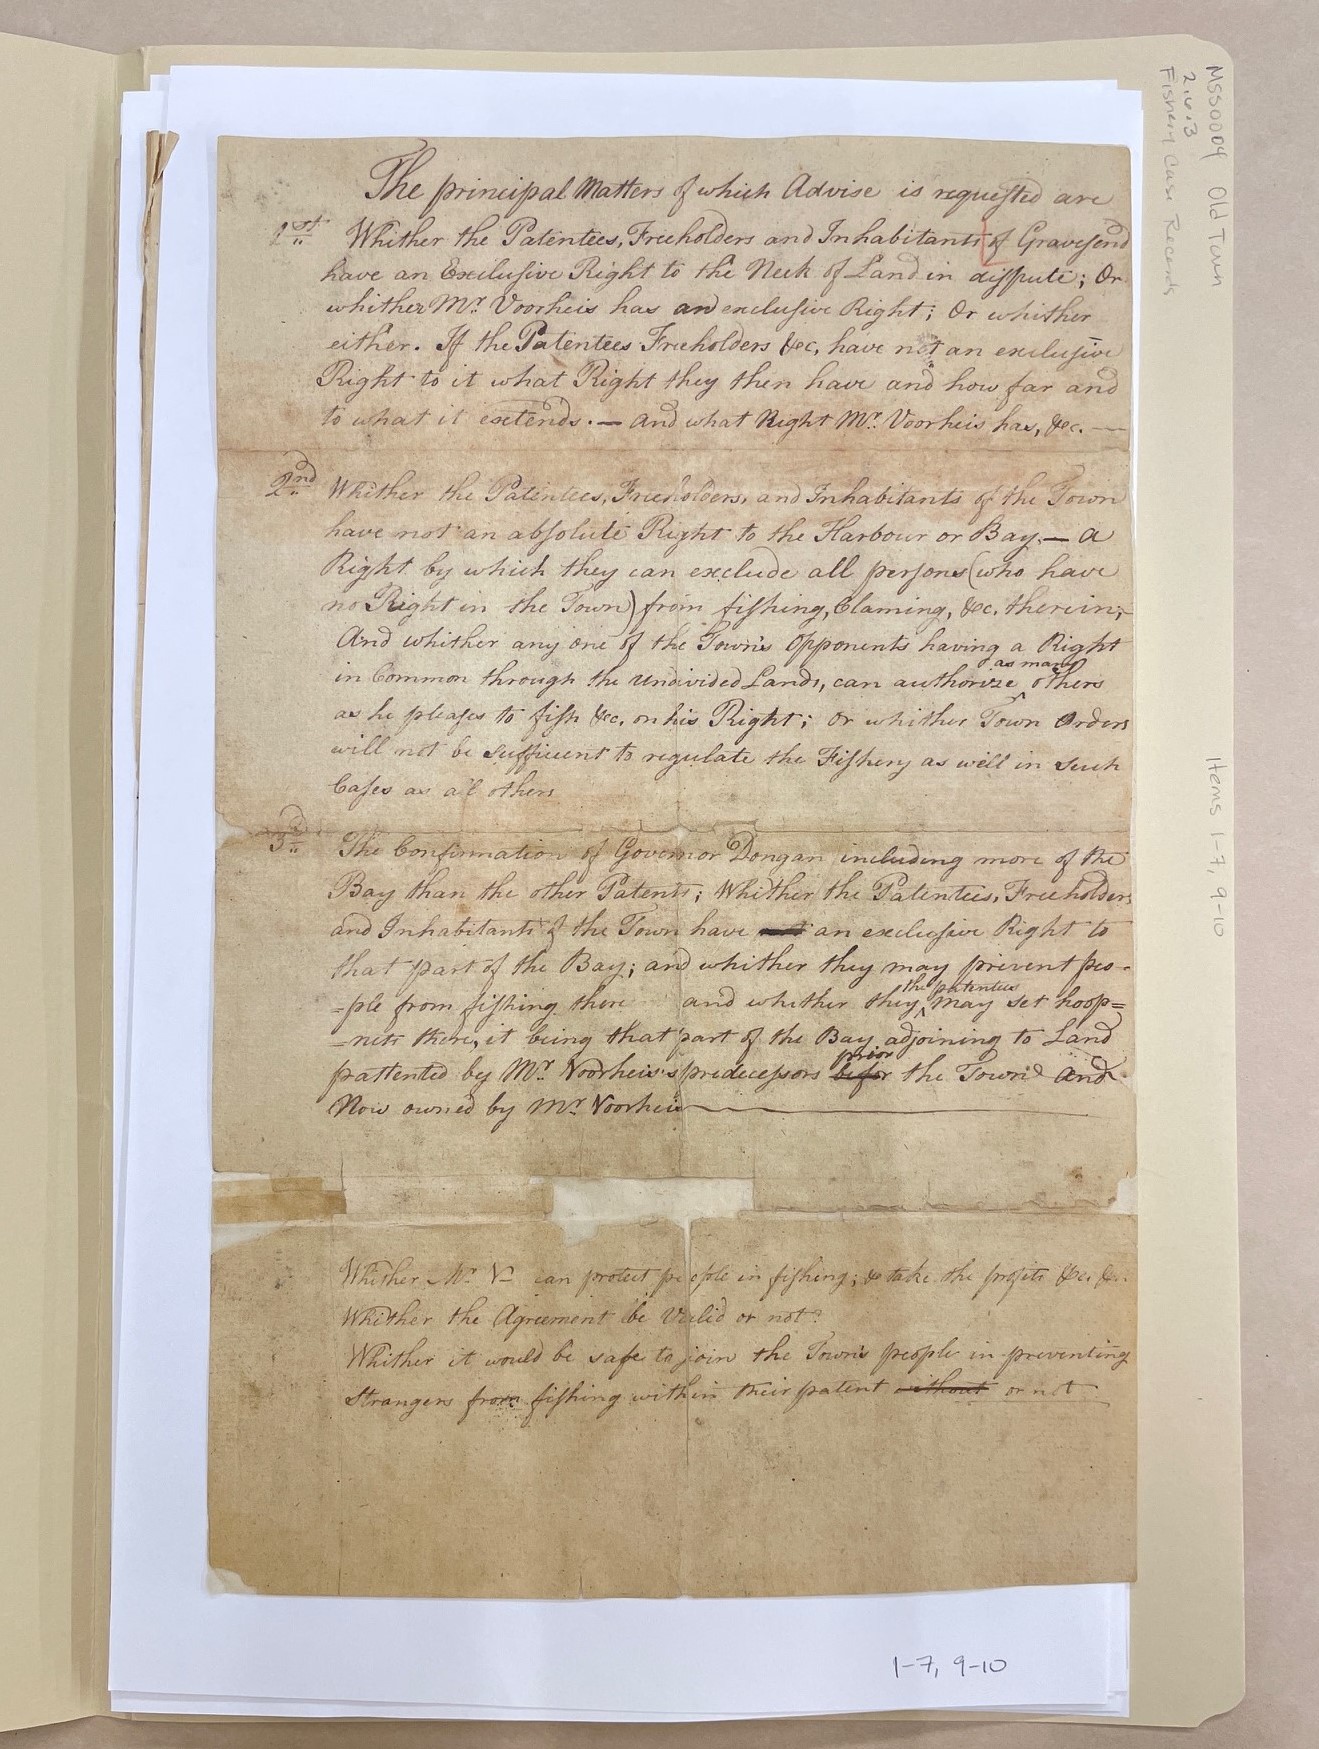 The principal Matters of which Advise is requested are
1st Whither the Patentees, Freeholders and Inhabitants of Gravesend
have an Exclusive Right to the Neck of Land in dispute; Or
whither Mr. Voorheis has an exclusive Right; Or whither
either. If the Patentees Freeholders &c, have not an exclusive
Right to it what Right they then have and how far and
to what it extends. — And what Right Mr. Voorheis has, &c. —
2nd Whither the Patentees, Freeholders, and Inhabitants of the Town
have not an absolute Right to the Harbour or Bay, — A
Right by which they can exclude all persons (who have
no Right in the Town) from fishing, Claming, &c. therein;—
And whither any one of the Town's Opponents having a Right
in Common through the undivided Lands, can authorize as many others
as he pleases to fish &c. on his Right; Or whither Town Orders
will not be sufficient to regulate the Fishery as well in such
Cases as all others
3d The Confirmation of Governor Dongan including more of the
Bay than the other Patents; Whither the Patentees, Freeholders
and Inhabitants of the Town have not an exclusive Right to
that part of the Bay; and whither they may prevent peo-
=ple from fishing there and whither they the patentees may set hoop=
=nets there, it being that part of the Bay adjoining to Land
pattented by Mr. Voorheis's predecessors befor prior the Town's And
Now owned by Mr. Voorheis
Whither Mr. V— can protect people in fishing; & take the profits &c. &c.
Whither the Agreement be Valid or not?
Whither it would be safe to join the Town's people in preventing
Strangers from fishing within their patent without or not
1-7, 9-10
MSS0004 Old Town
2.4.3
Fishery Case Records
Items 1-7, 9-10